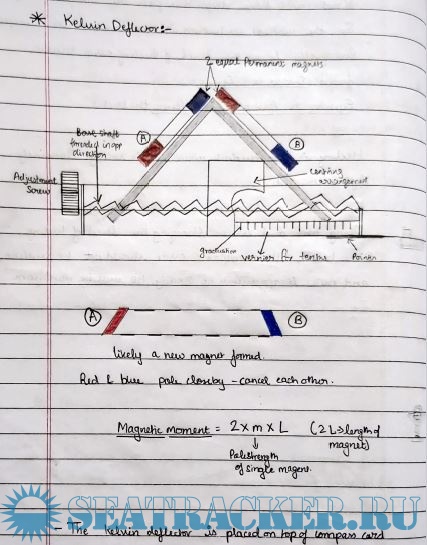 * Kelvin Deflector:-
2 equal Permanent magnets
Base shaft
threaded in opp
direction
B
B
Adjustment
Screw
centring
arrangement
graduation
vernier for tenths
Pointer
A
B
likely a new magnet formed.
Red & blue pole closeby - cancel each other.
Magnetic moment = 2 x m x L (2L → length of
magnet)
Polestrength
of single magent.
SEATRACKER.RU
- The kelvin deflector is placed on top of compass card